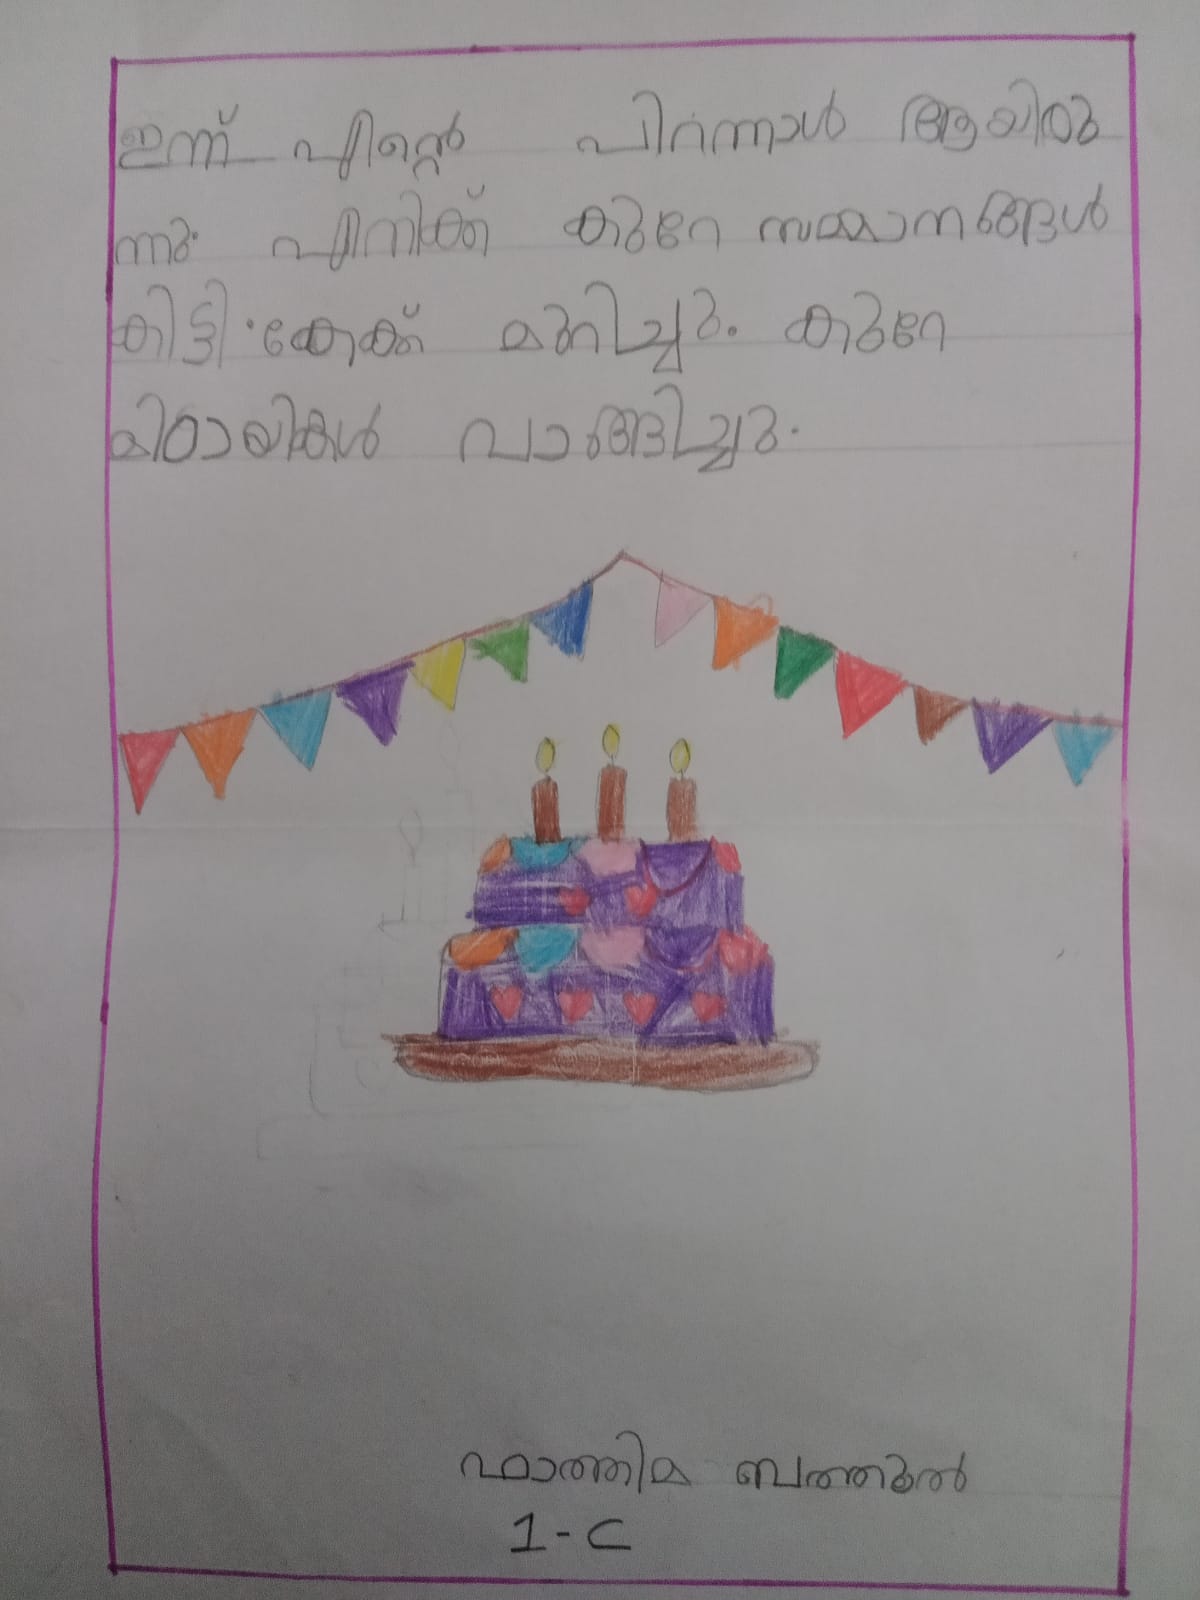 ഇന്ന് എന്റെ പിറന്നാൾ ആയിരു
ന്നു. എനിക്ക് കുറേ സമ്മാനങ്ങൾ
കിട്ടി. കേക്ക് മുറിച്ചു. കുറേ
മിഠായികൾ വാങ്ങിച്ചു.
ഫാത്തിമ ബത്തൂൽ
1-C